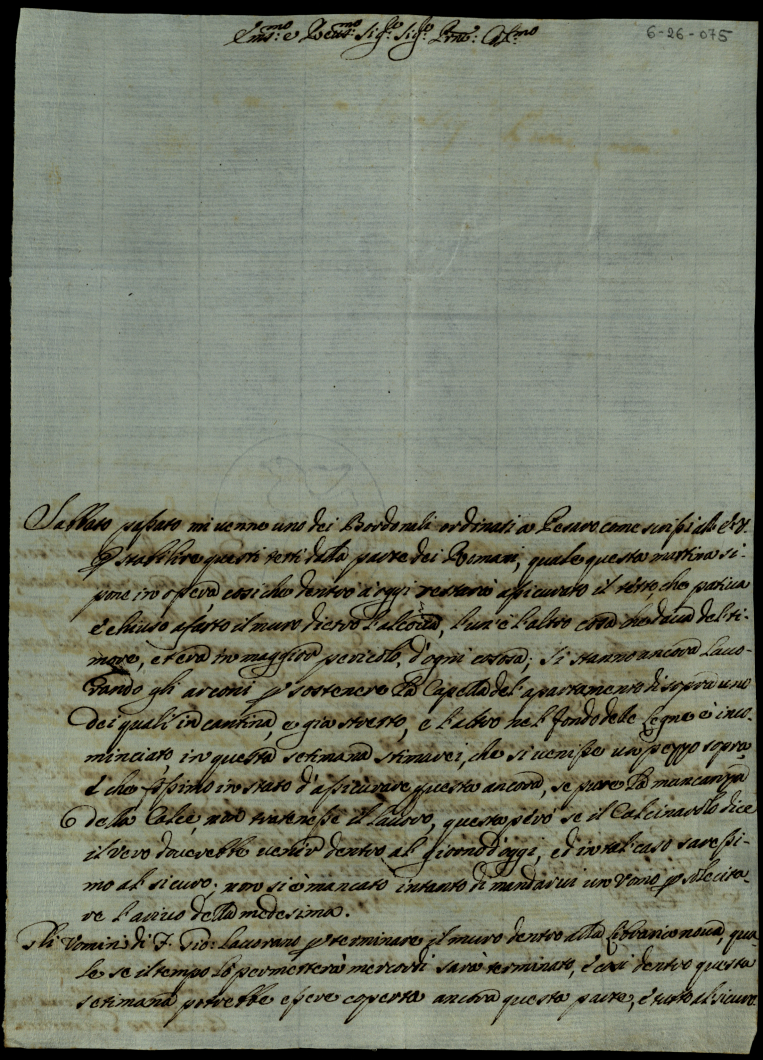 Em.mo e Reu.mo Sig.r Sig.r Prne: Col.mo
6-26-075
Sabbato passato mi uenne uno dei Bordonali ordinati a Pesaro come scrissi alla E: V:
p stabilire questi tetti dalla parte dei Romani, quale questa mattina si-
pone in opera cosi che dentro d'oggi restarà assicurato il tetto, che patiua
è chiuso afatto il muro dietro l'alcoua, l'una e l'altro cosa che daua del ti-
more, et era in maggior pericolo, d'ogni cososa; Si stanno ancora lauo-
rando gli arconi p sostenere la Capella del apartamento di sopra uno
dei quali in cantina, e gia stretto, e l'altro nel fondo dele Legna è inco-
minciato in questa setimana stimarei, che si uenisse un pezzo sopra,
è che fossimo in stato d'assicurare questa ancora, se pure la mancanza
della Calce, non tratenesse il lauoro, questa però se il Calcinarolo dice
il uero douerebbe uenir dentro al giorno d'oggi, ed in tal caso saressi-
mo al sicuro; non si è mancato intanto di mandarui un uomo p solecita-
re l'ariuo della medesima.
Gli Uomini di F. Gio: lauorano p terminare il muro dentro alla Libraria noua, qua-
le se il tempo lo permetterà mercordi sarà terminato, è cosi dentro questa
setimana potrebbe essere coperta ancora questa parte, è tutto al sicuro